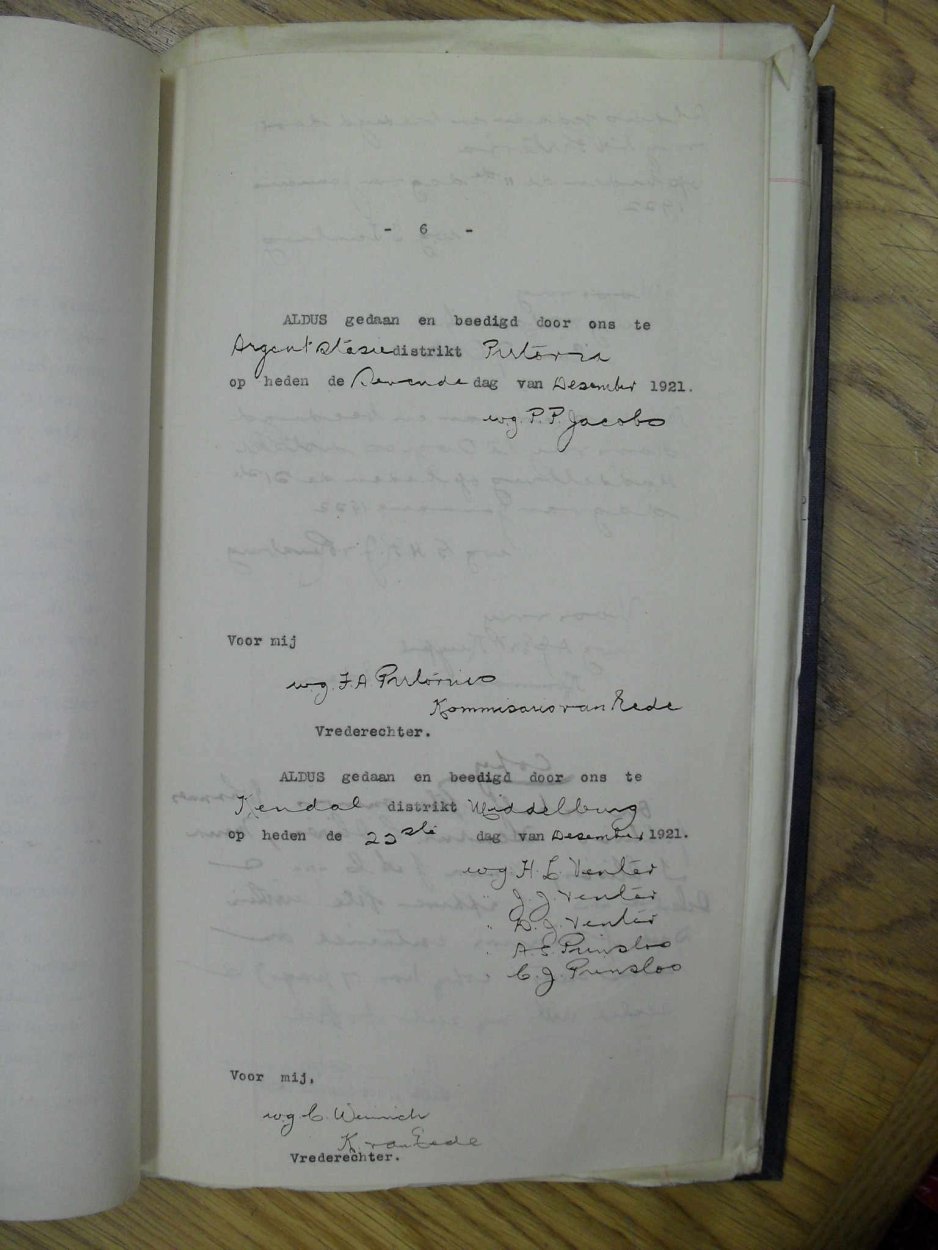 - 6 -
ALDUS gedaan en beedigd door ons te
Argent Stasie distrikt Pretoria
op heden de Sevende dag van Desember 1921.
w.g. P.P. Jacobs
Voor mij
w.g. F.A. Pretorius
Kommisaris van Eede
Vrederechter.
ALDUS gedaan en beedigd door ons te
Kendal distrikt Middelburg
op heden de 23ste dag van Desember 1921.
w.g. H.L. Venter
J.J. Venter
" D.J. Venter
" A.E. Prinsloo
C.J. Prinsloo
Voor mij,
w.g. C.
K. van Eede
Vrederechter.